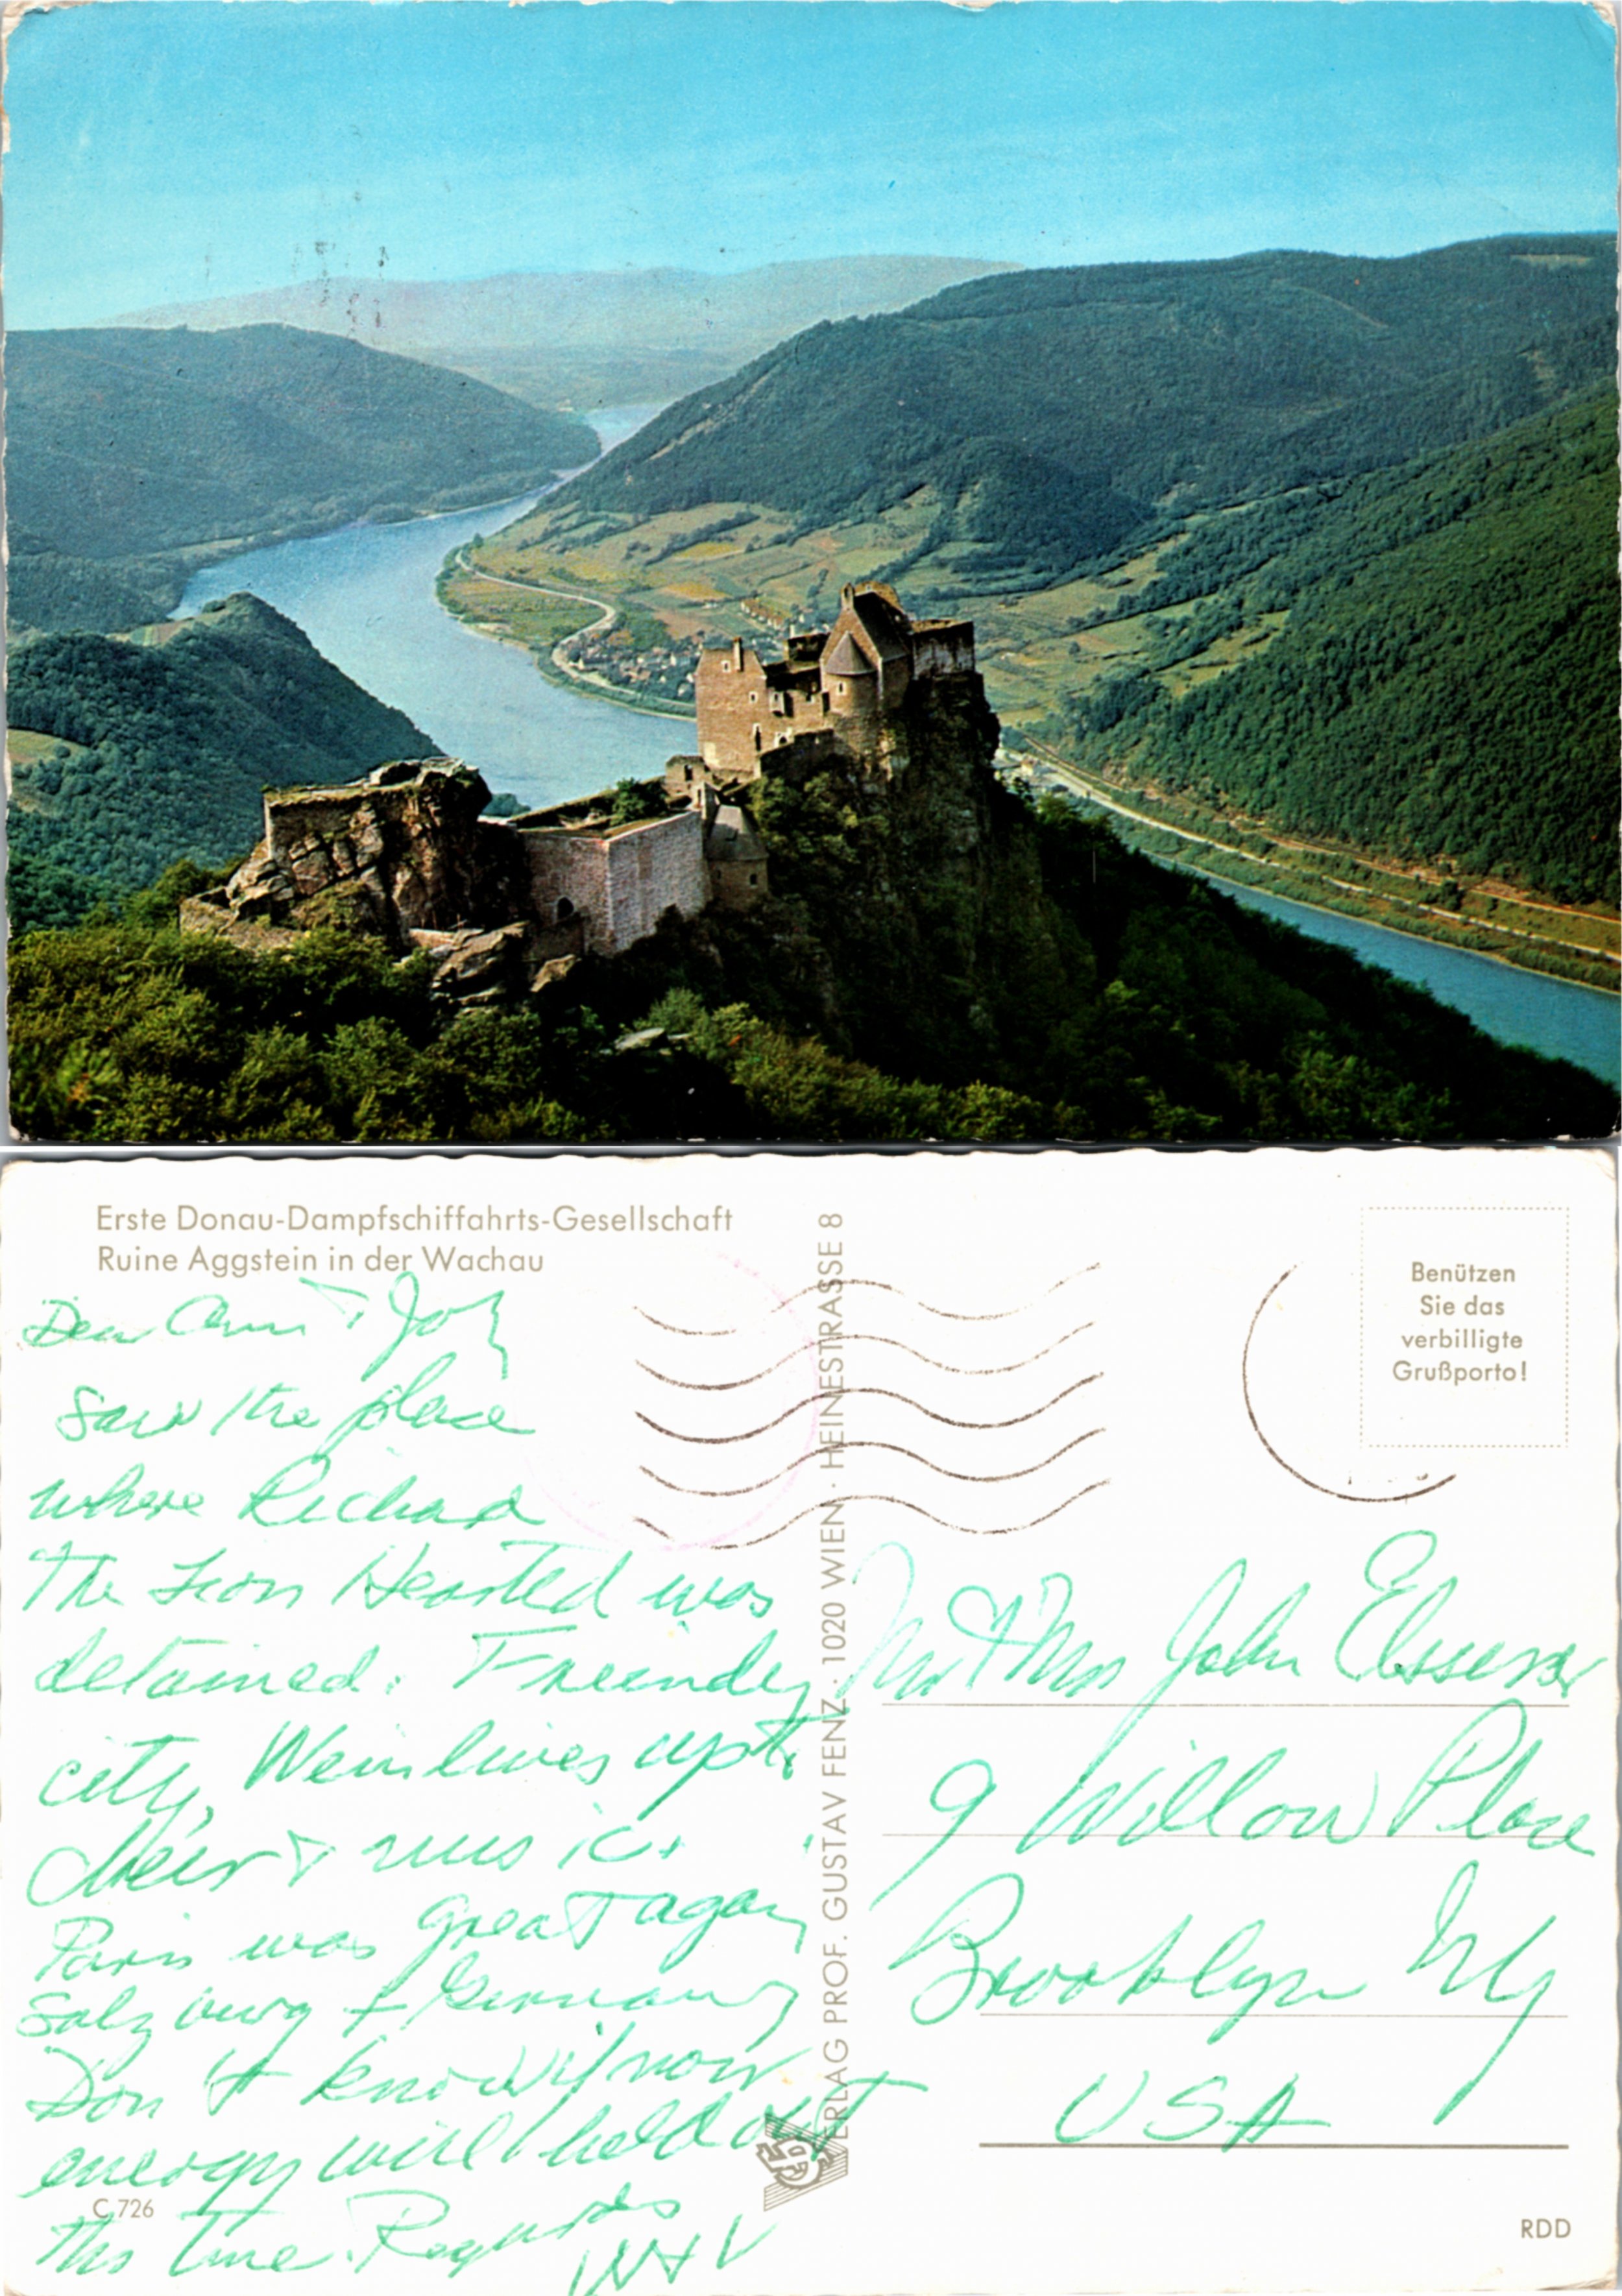 Erste Donau-Dampfschiffahrts-Gesellschaft
Ruine Aggstein in der Wachau
Dear Ann & Joh
Saw the place
where Richard
The Lion Hearted was
detained. Freindly
city, Wein lives up to
cheer & music.
Paris was great again
Salzburg & Germany
Don't know if
energy will hold out
this time. Regards
VERLAG PROF. GUSTAV FENZ · 1020 WIEN · HEINESTRASSE 8
Benützen
Sie das
verbilligte
Grußporto!
Mr & Mrs John Elsesser
9 Willow Place
Brooklyn NY
USA
C 726
RDD